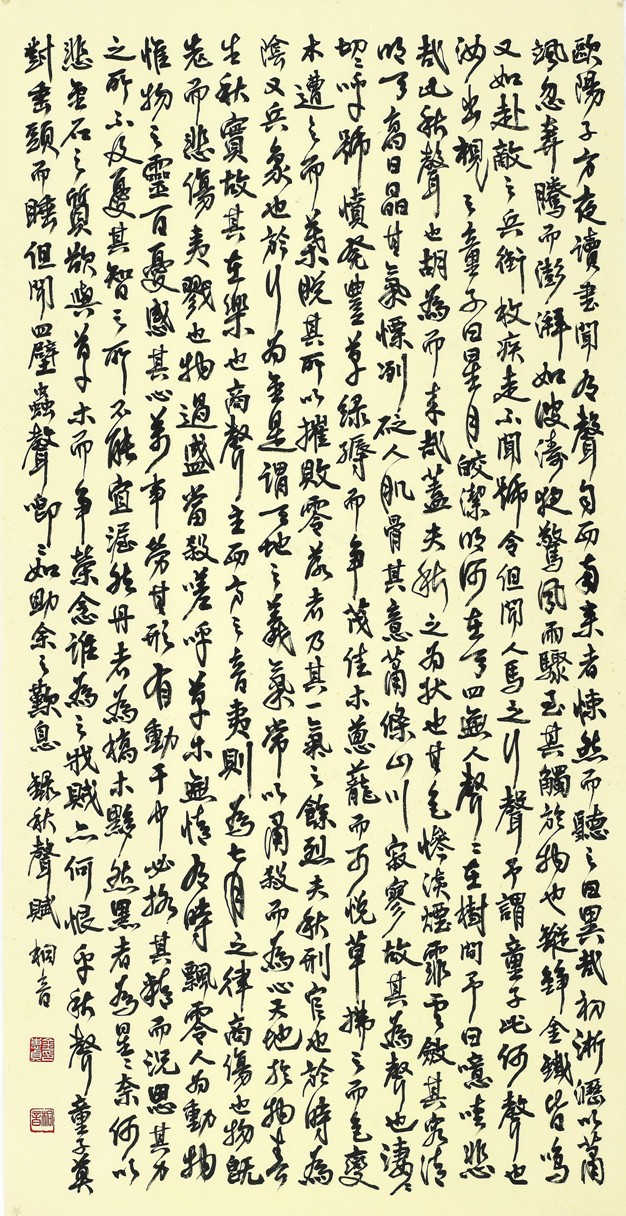 歐陽子方夜讀書聞有聲自西南來者悚然而聽之曰異哉初淅瀝以蕭
颯忽奔騰而澎湃如波濤夜驚風雨驟至其觸於物也鏦錚金鐵皆鳴
又如赴敵之兵銜枚疾走不聞號令但聞人馬之行聲予謂童子此何聲也
汝出視之童子曰星月皎潔明河在天四無人聲聲在樹間予曰噫嘻悲
哉此秋聲也胡為而來哉蓋夫秋之為狀也其色慘淡煙霏雲斂其容清
明天高日晶其氣慄冽砭人肌骨其意蕭條山川寂寥故其為聲也淒淒
切切呼號憤發豐草綠縟而爭茂佳木蔥蘢而可悅草拂之而色變
木遭之而葉脫其所以摧敗零落者乃其一氣之餘烈夫秋刑官也於時為
陰又兵象也於行為金是謂天地之義氣常以肅殺而為心天地於物春
生秋實故其在樂也商聲主西方之音夷則為七月之律商傷也物既
老而悲傷夷戮也物過盛當殺嗟呼草木無情有時飄零人為動物
惟物之靈百憂感其心萬事勞其形有動于中必搖其精而況思其力
之所不及憂其智之所不能宜渥然丹者為槁木黟然黑者為星星奈何以
悲金石之質欲與草木而爭榮念誰為之戕賊亦何恨乎秋聲童子莫
對垂頭而睡但聞四壁蟲聲唧唧如助余之歎息 錄秋聲賦 桐音